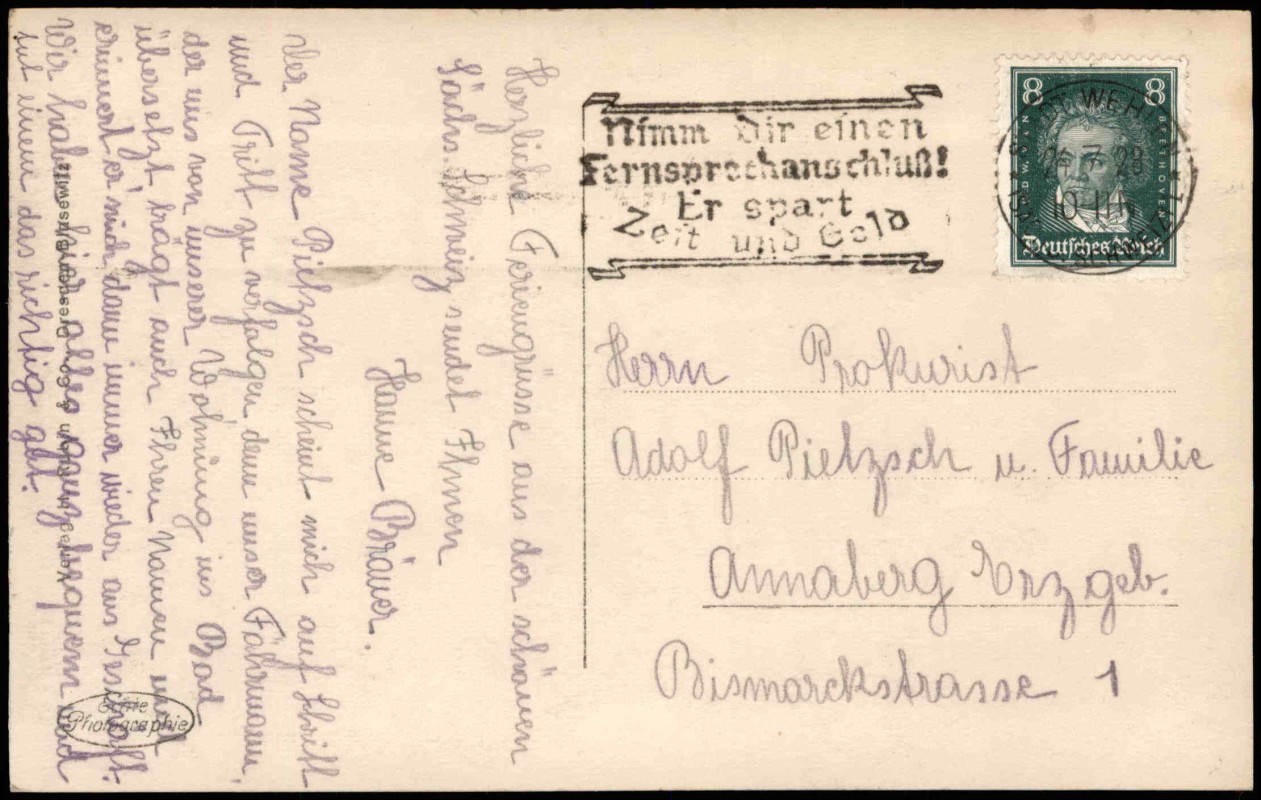 Herzliche Feriengrüsse aus der schönen
Sächs. Schweiz sendet Ihnen
Hanne Bräuer.
Der Name Pietzsch scheint mich auf Schritt
und Tritt zu verfolgen denn unser Fährmann,
der uns von unserer Wohnung ins Bad
übersetzt trägt auch Ihren Namen und
erinnert er mich dann immer wieder ans Geschäft.
Wir haben hier alles ganz bequem und
tut einem das richtig gut.
Echte
Photographie
Nimm Dir einen
Fernsprechanschluß!
Er spart
Zeit und Geld
8 8
LUDW. VAN BEETHOVEN
Deutsches Reich
STADT WEHLEN
10-11
Herrn Prokurist
Adolf Pietzsch u. Familie
Annaberg Erzgeb.
Bismarckstrasse 1